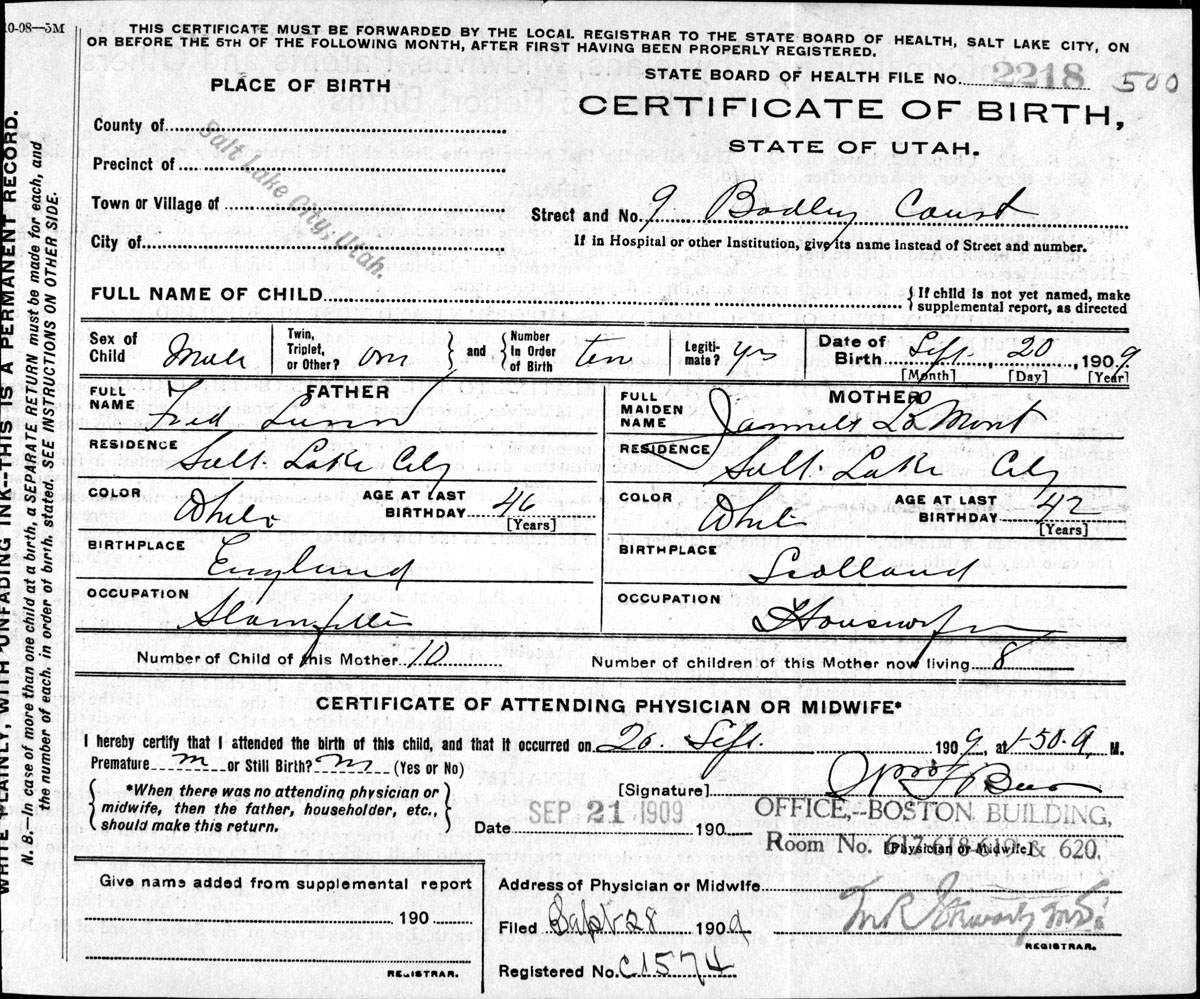 10-08—5M
THIS CERTIFICATE MUST BE FORWARDED BY THE LOCAL REGISTRAR TO THE STATE BOARD OF HEALTH, SALT LAKE CITY, ON
OR BEFORE THE 5TH OF THE FOLLOWING MONTH, AFTER FIRST HAVING BEEN PROPERLY REGISTERED.
STATE BOARD OF HEALTH FILE No. 2218 500
PLACE OF BIRTH
CERTIFICATE OF BIRTH,
STATE OF UTAH.
County of
Precinct of
Town or Village of
City of
Salt Lake City, Utah.
Street and No. 9 Bodley Court
If in Hospital or other Institution, give its name instead of Street and number.
FULL NAME OF CHILD
{ If child is not yet named, make
supplemental report, as directed
Sex of Child Male
Twin, Triplet, or Other? one } and { Number In Order of Birth ten
Legitimate? yes
Date of Birth Sept. 20 1909
[Month] [Day] [Year]
FATHER
FULL NAME Fred Lunn
RESIDENCE Salt Lake City
COLOR White AGE AT LAST BIRTHDAY 46
[Years]
BIRTHPLACE England
OCCUPATION Steamfitter
MOTHER
FULL MAIDEN NAME LaMont
RESIDENCE Salt Lake City
COLOR White AGE AT LAST BIRTHDAY 42
[Years]
BIRTHPLACE Scotland
OCCUPATION Housewife
Number of Child of this Mother 10
Number of children of this Mother now living 8
CERTIFICATE OF ATTENDING PHYSICIAN OR MIDWIFE*
I hereby certify that I attended the birth of this child, and that it occurred on 20 Sept. 1909, at 1-50 A. M.
Premature no or Still Birth? no (Yes or No)
{ *When there was no attending physician or
midwife, then the father, householder, etc.,
should make this return. }
[Signature]
Date SEP 21 1909 190
OFFICE,—BOSTON BUILDING,
Room No. 617-618-619 & 620.
[Physician or Midwife]
Give name added from supplemental report
190
REGISTRAR.
Address of Physician or Midwife
Filed Sept 28 1909
REGISTRAR.
Registered No. C1574
WRITE PLAINLY, WITH UNFADING INK--THIS IS A PERMANENT RECORD.
N.B.—In case of more than one child at a birth, a SEPARATE RETURN must be made for each, and
the number of each, in order of birth, stated. SEE INSTRUCTIONS ON OTHER SIDE.